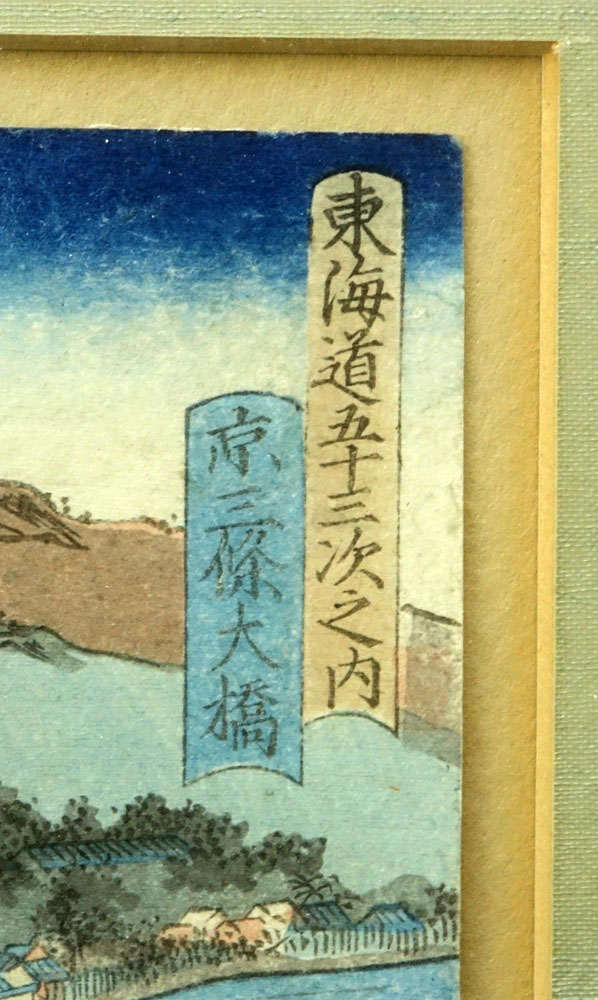 東海道五十三次之内
京三條大橋